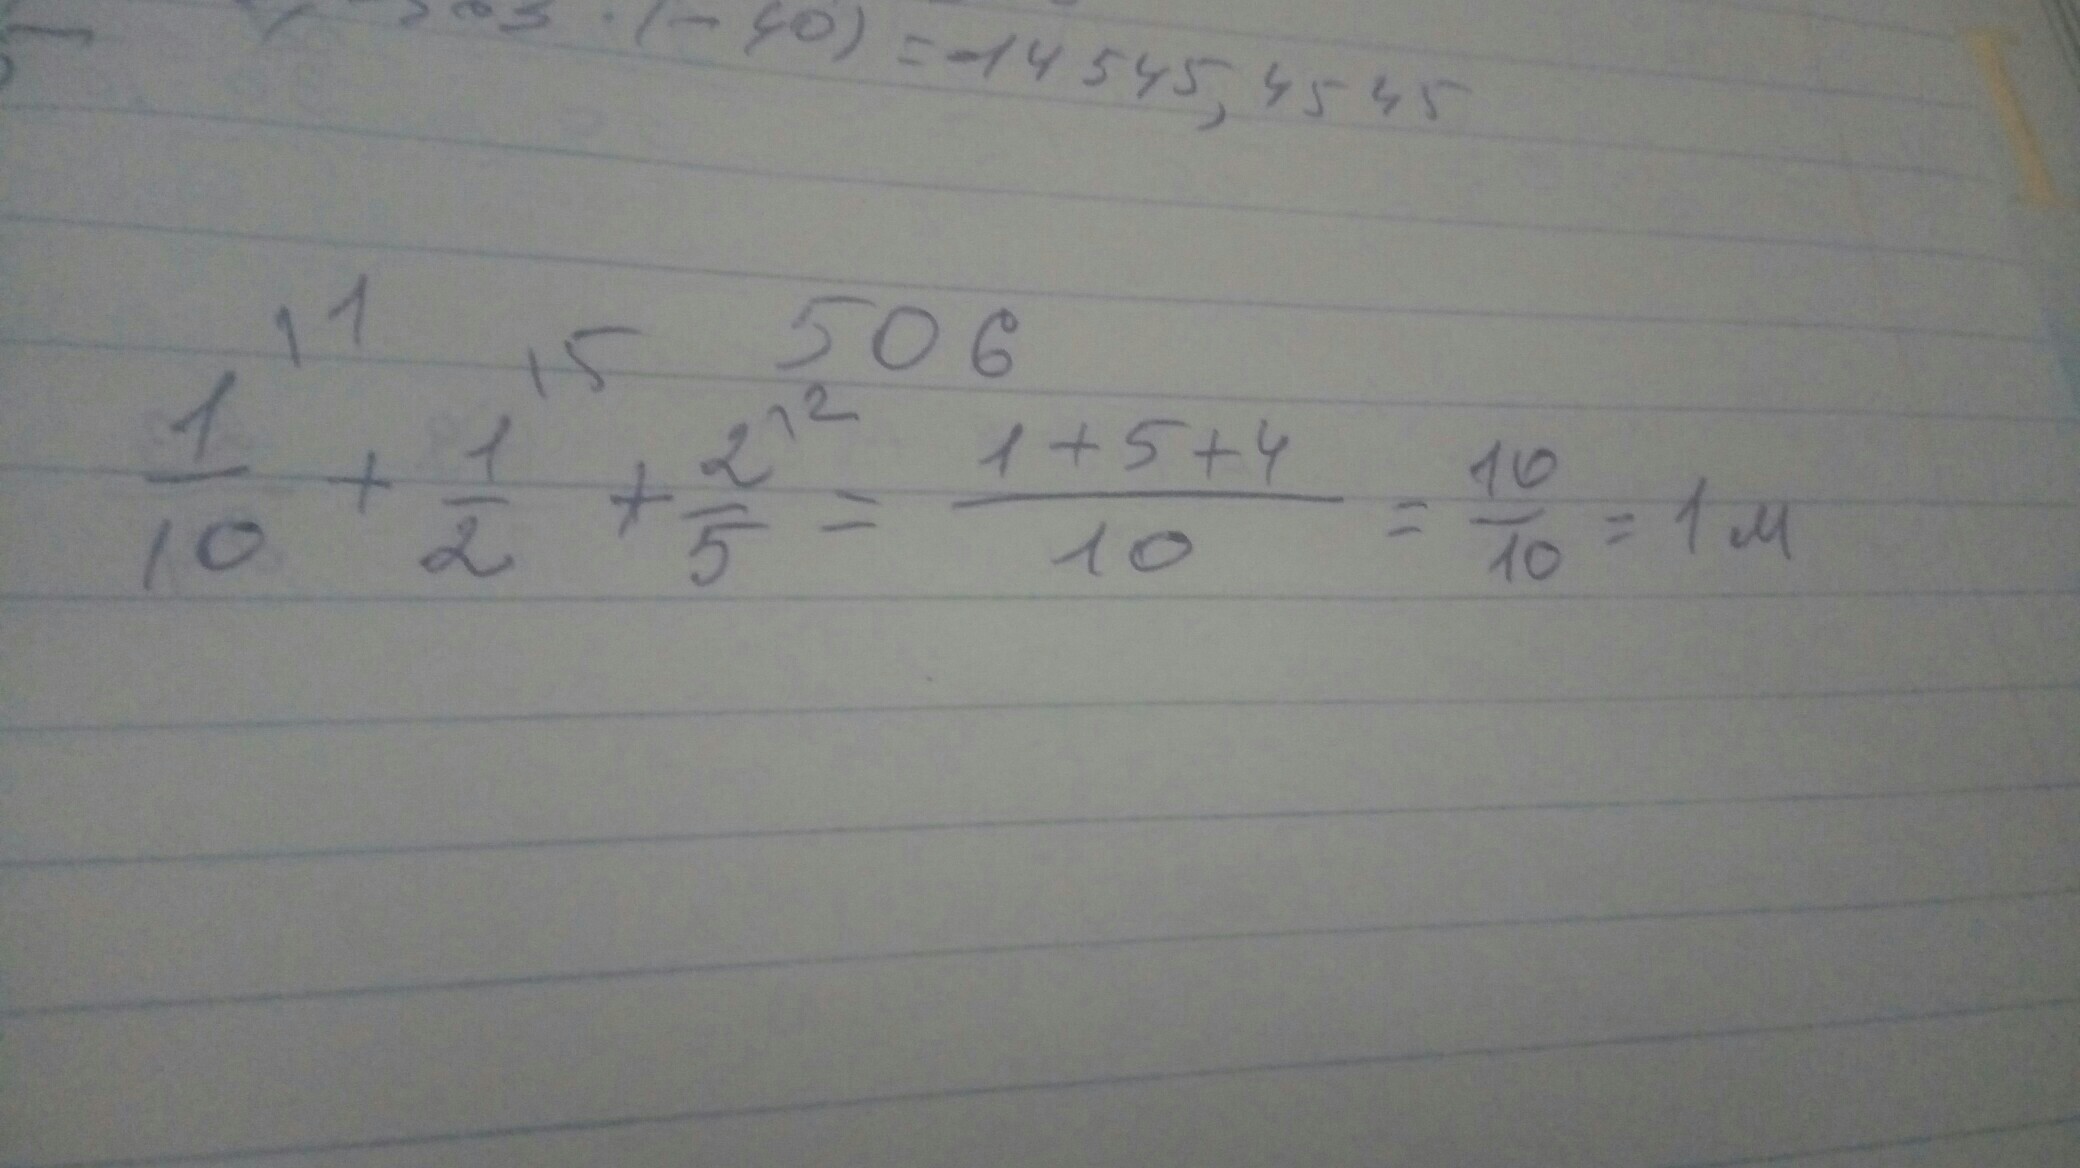 · (- 40) = -14545,4545
506
1/10 ⁱ¹ + 1/2 ⁱ⁵ + 2/5 ⁱ² = (1+5+4)/10 = 10/10 = 1 м